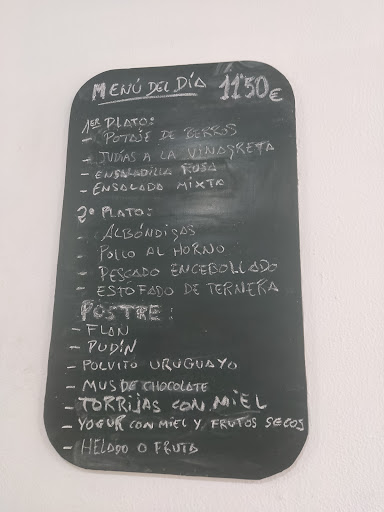 MENÚ DEL DÍA 11'50€
1er PLATO:
- POTAJE DE BERROS
- JUDÍAS A LA VINAGRETA
- ENSALADILLA RUSA
- ENSALADA MIXTA
2º PLATO:
- ALBÓNDIGAS
- POLLO AL HORNO
- PESCADO ENCEBOLLADO
- ESTOFADO DE TERNERA
POSTRE:
- FLAN
- PUDÍN
- POLVITO URUGUAYO
- MUS DE CHOCOLATE
- TORRIJAS CON MIEL
- YOGUR CON MIEL Y FRUTOS SECOS
- HELADO O FRUTA